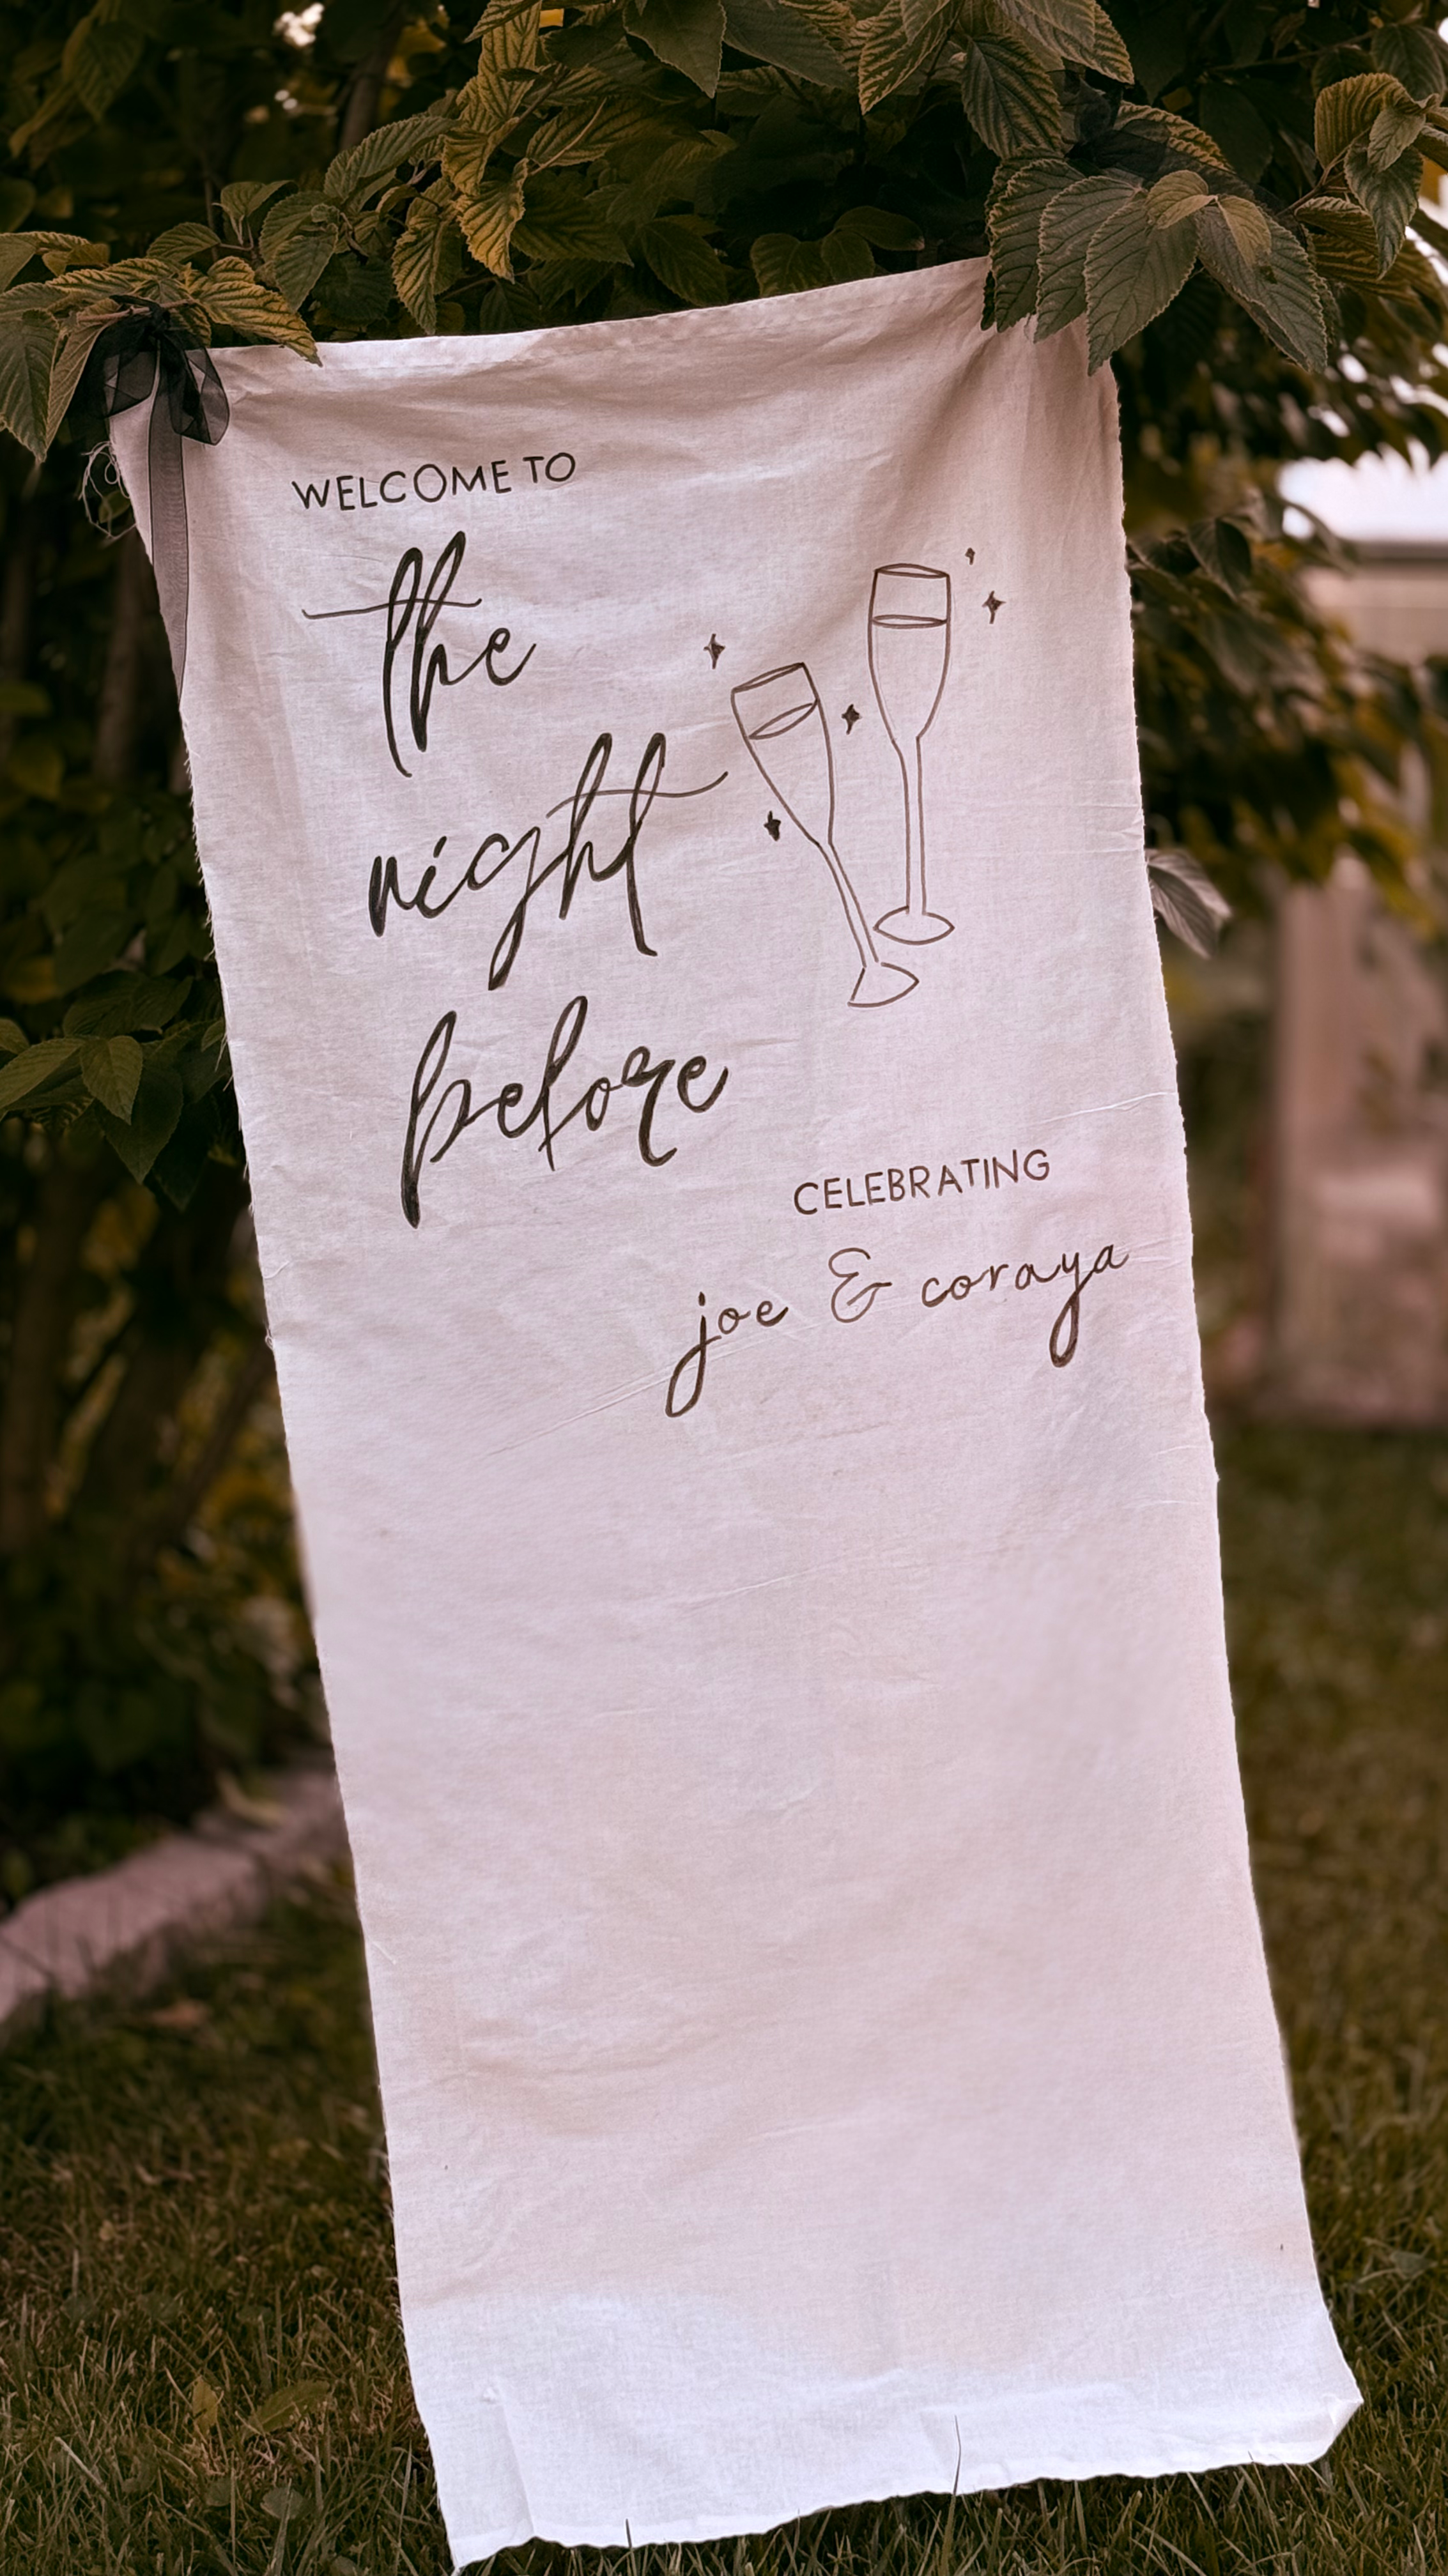 WELCOME TO
the
night
before
CELEBRATING
joe & coraya